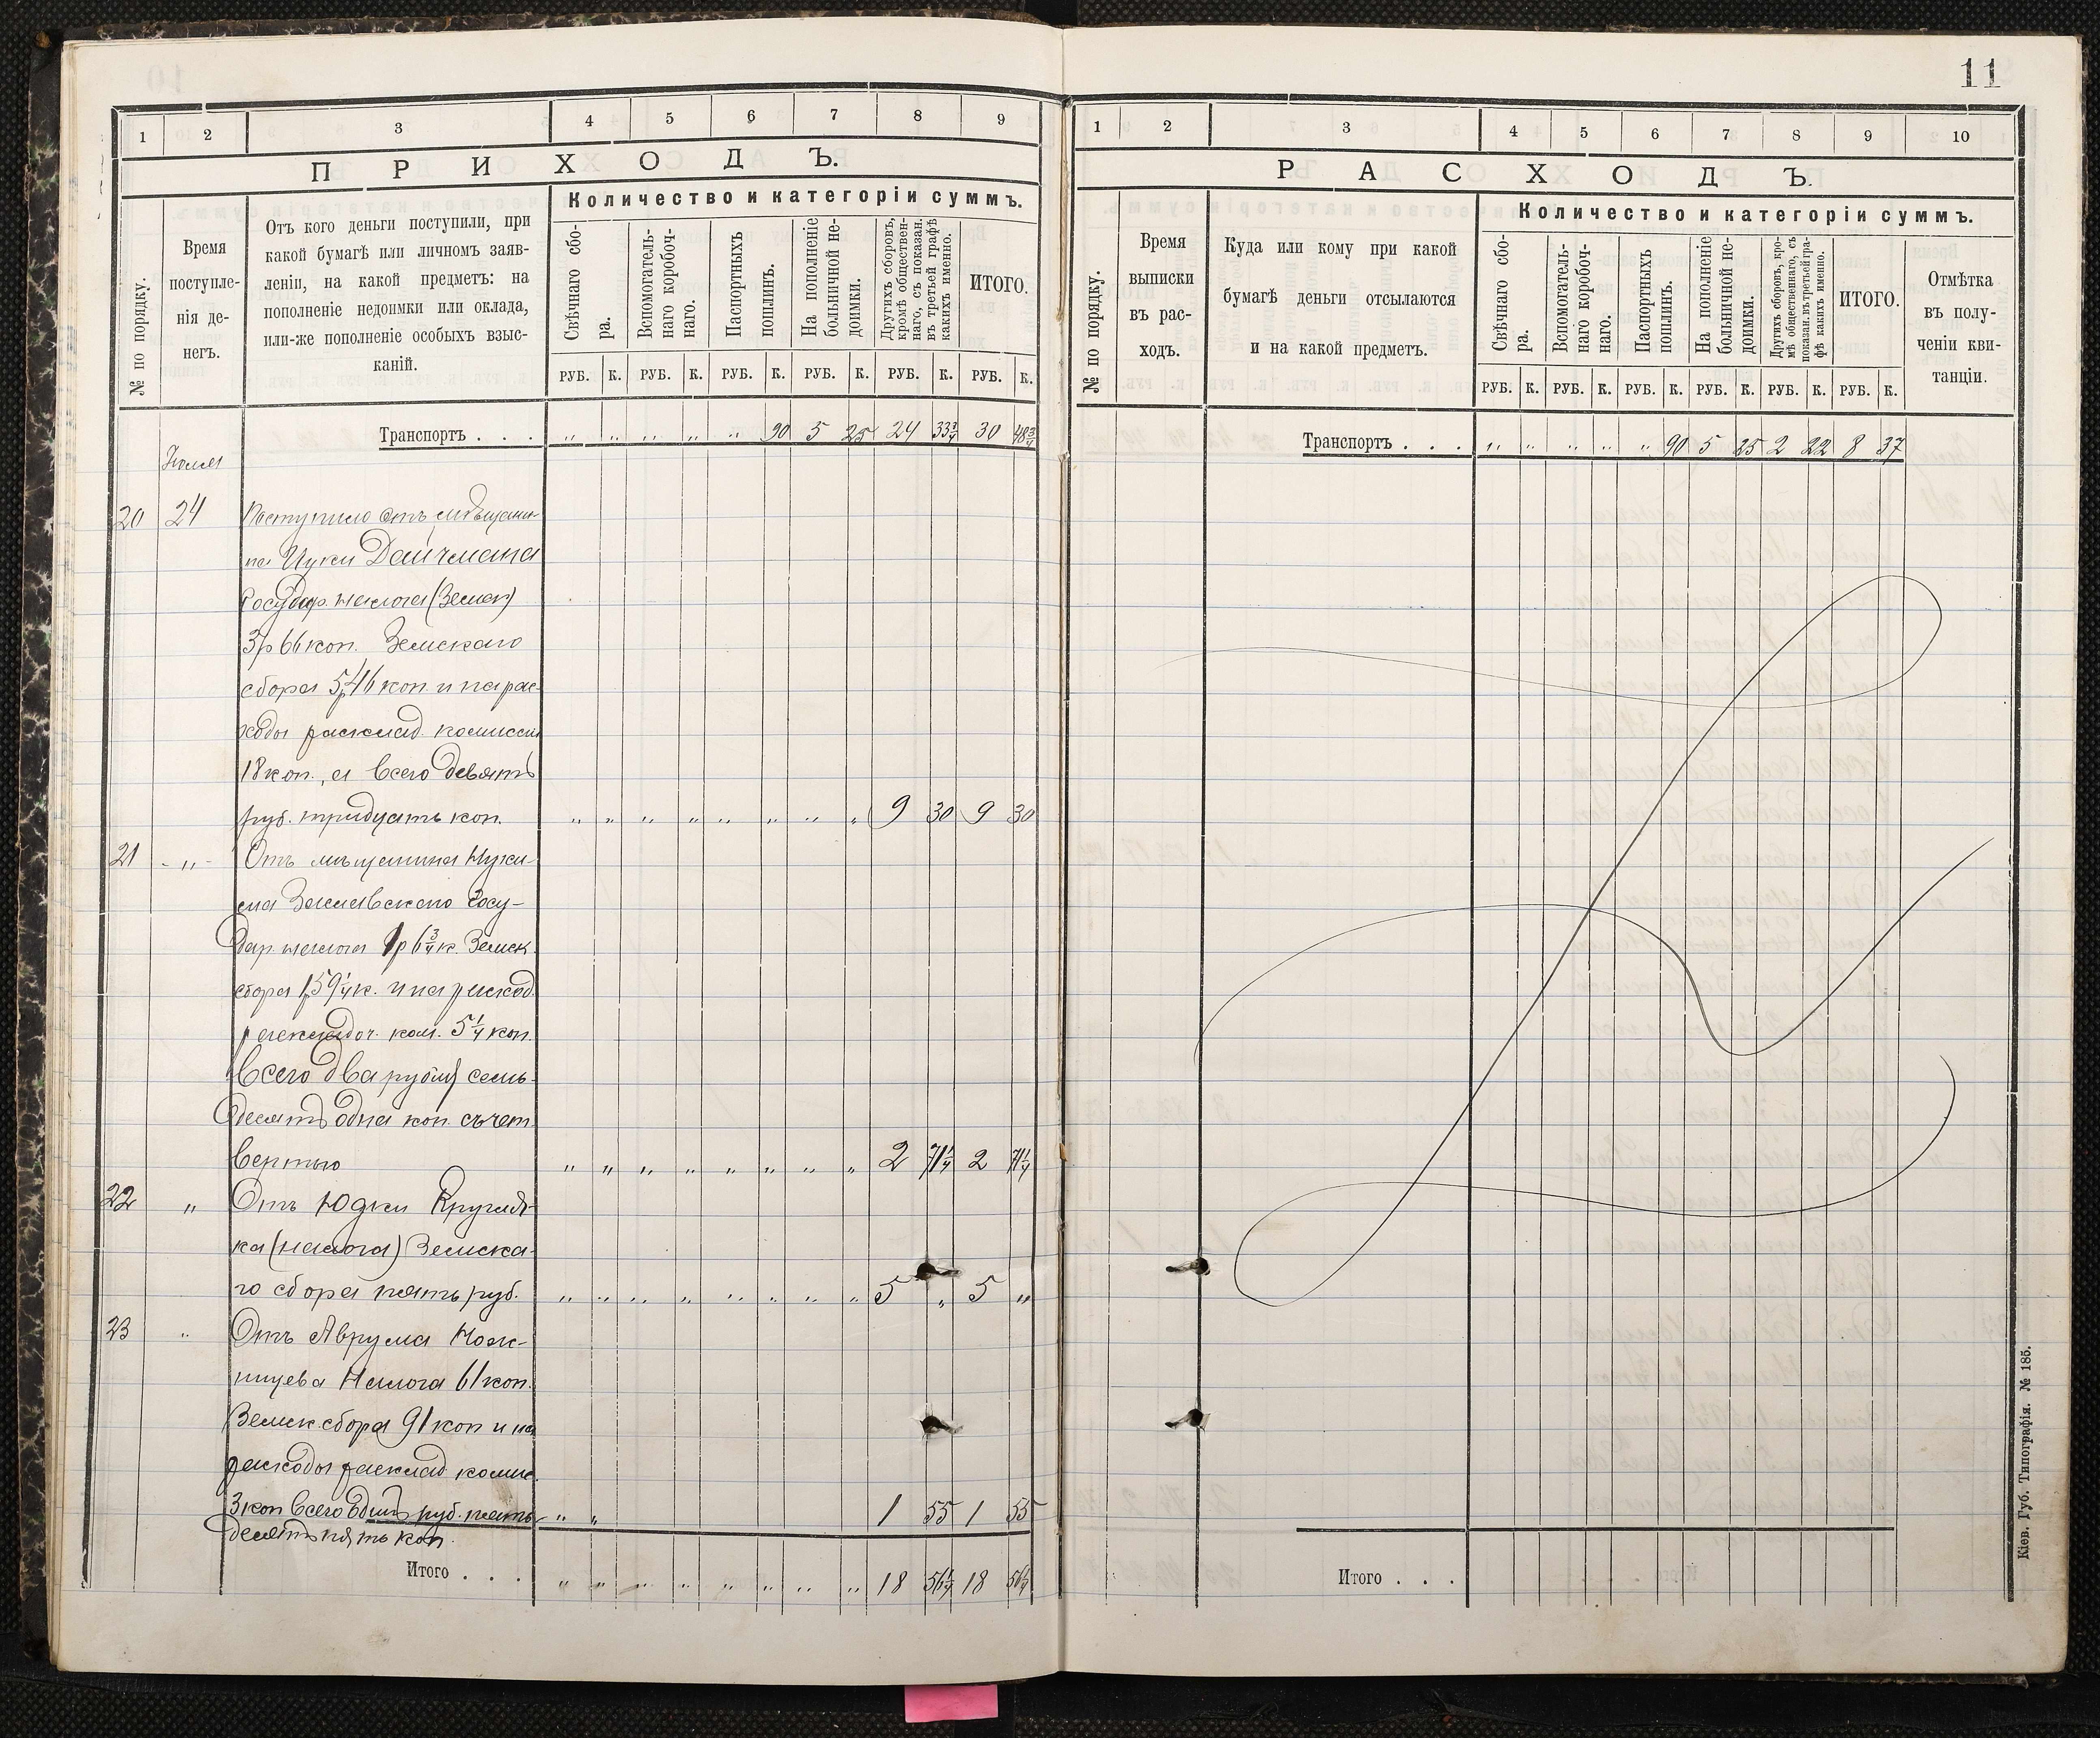 11
1 2 3 4 5 6 7 8 9
П Р И Х О Д Ъ.
№ по порядку.
Время
поступле-
нія де-
негъ.
Отъ кого деньги поступили, при
какой бумагѣ или личномъ заяв-
леніи, на какой предметъ: на
пополненіе недоимки или оклада,
или-же пополненіе особыхъ взыс-
каній.
Количество и категоріи суммъ.
Свѣчнаго сбо-
ра.
Вспомогатель-
наго коробоч-
наго.
Паспортныхъ
пошлинъ.
На пополненіе
больничной не-
доимки.
Другихъ сборовъ,
кромѣ обществен-
наго, съ показан.
въ третьей графѣ
какихъ именно.
ИТОГО.
РУБ. К. РУБ. К. РУБ. К. РУБ. К. РУБ. К. РУБ. К.
Транспортъ . . . „ „ „ „ „ 90 5 25 24 33¾ 30 48¾
20 24 Поступило отъ мѣщани-
на Цуки Дайчмана
Государ. налога (Земск)
3р 66 коп. Земскаго
сбора 5р 46 коп. и на рас-
ходы расклад. комиссіи
18 коп., а всего девять
руб. тридцать коп. „ „ „ „ „ „ „ „ 9 30 9 30
21 - „ - Отъ мѣщанина
Заславскаго Госу-
дар. налога 1р 6¾ к. Земск.
сбора 1р 59¼ к. и на расход.
раскладоч. ком. 5¼ коп.
Всего два рубля семь-
десятъ одна коп. съ чет
вертью „ „ „ „ „ „ „ „ 2 71¼ 2 71¼
22 „ Отъ Юдки Кругля-
ка (налога) Земска-
го сбора пять руб. „ „ „ „ „ „ „ „ 5 „ 5 „
23 „ Отъ Аврума Нож-
ницева Налога 61 коп.
Земск. сбора 91 коп и на
расходы расклад комис.
3 коп всего одинъ руб. пять- „ „ 1 55 1 55
десятъ пять коп.
Итого . . . „ „ „ „ „ „ „ „ 18 56¼ 18 56¼
1 2 3 4 5 6 7 8 9 10
Р А С Х О Д Ъ.
№ по порядку.
Время
выписки
въ рас-
ходъ.
Куда или кому при какой
бумагѣ деньги отсылаются
и на какой предметъ.
Количество и категоріи суммъ.
Свѣчнаго сбо-
ра.
Вспомогатель-
наго коробоч-
наго.
Паспортныхъ
пошлинъ.
На пополненіе
больничной не-
доимки.
Другихъ сборовъ, кро-
мѣ общественнаго, съ
показан. въ третьей гра-
фѣ какихъ именно.
ИТОГО.
Отмѣтка
въ полу-
ченіи кви-
танціи.
РУБ. К. РУБ. К. РУБ. К. РУБ. К. РУБ. К. РУБ. К.
Транспортъ . . . „ „ „ „ „ 90 5 25 2 22 8 37
Итого . . .
Кіев. Губ. Типографія. № 185.